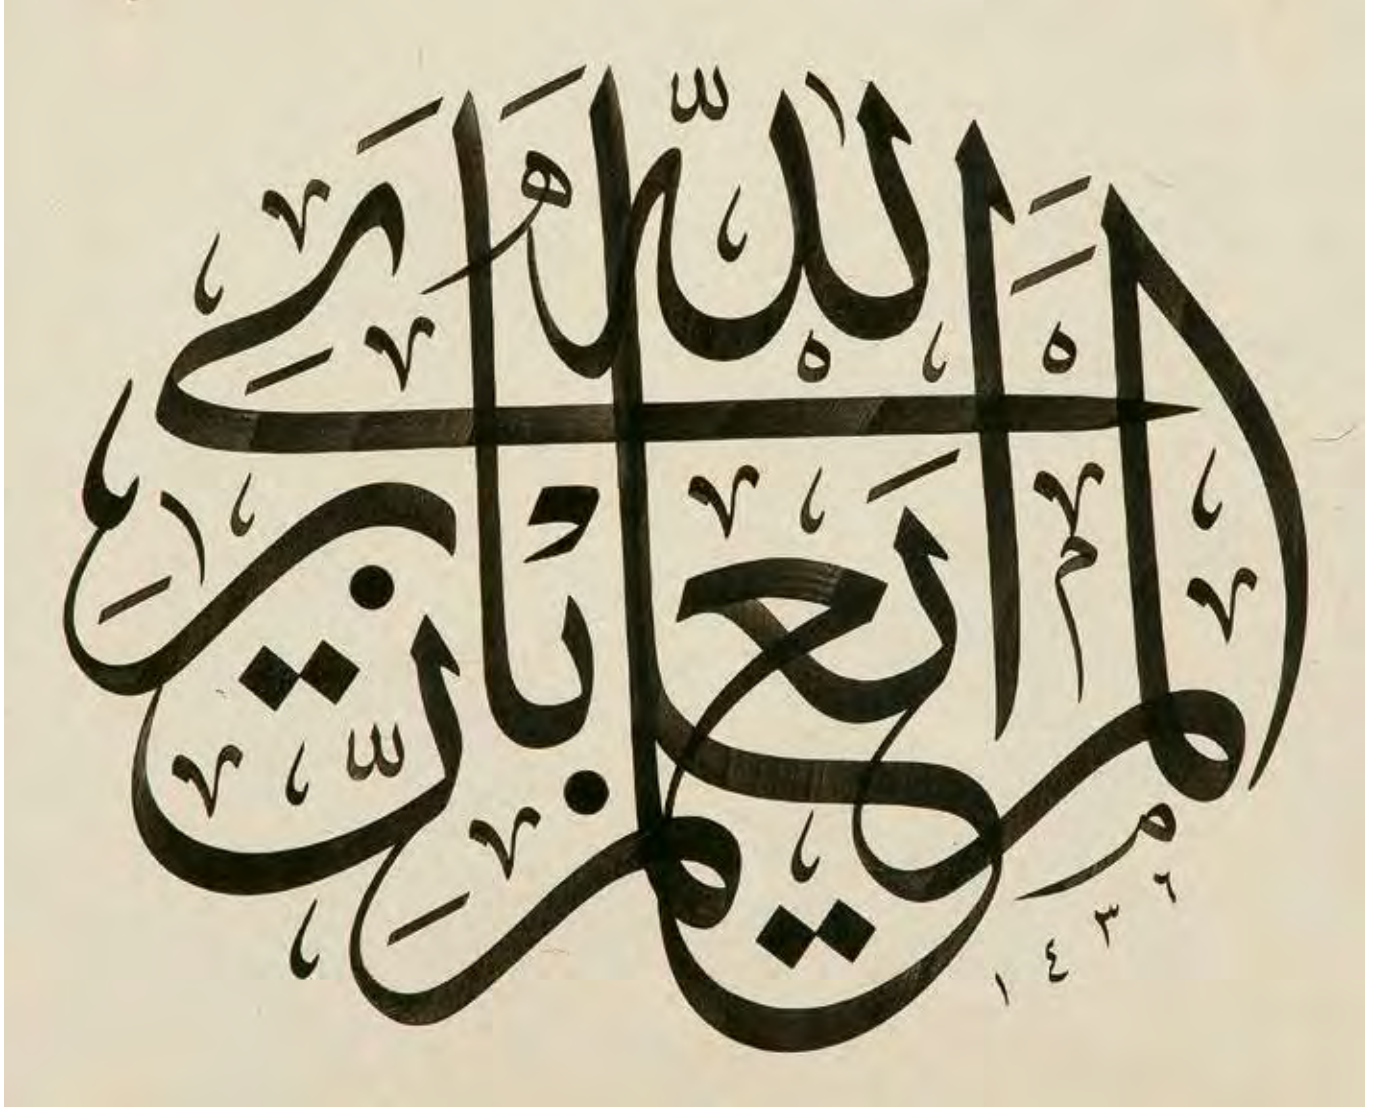 أَلَمْ يَعْلَمْ بِأَنَّ اللَّهَ يَرَىٰ
١٤٣٦